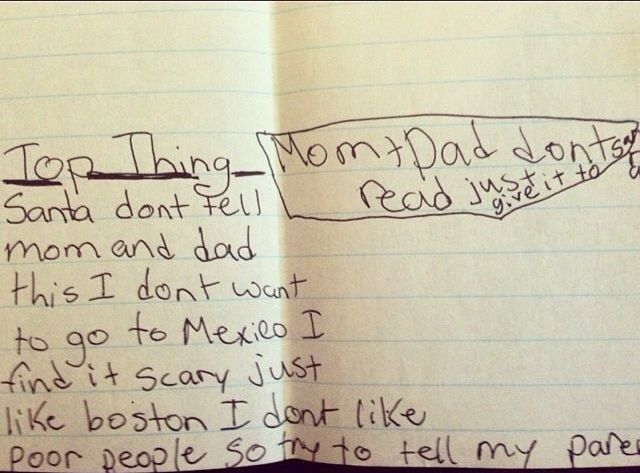 Top Thing
Mom + Dad dont
read just give it to santa
Santa dont tell
mom and dad
this I dont want
to go to Mexico I
find it scary just
like boston I dont like
poor people so try to tell my